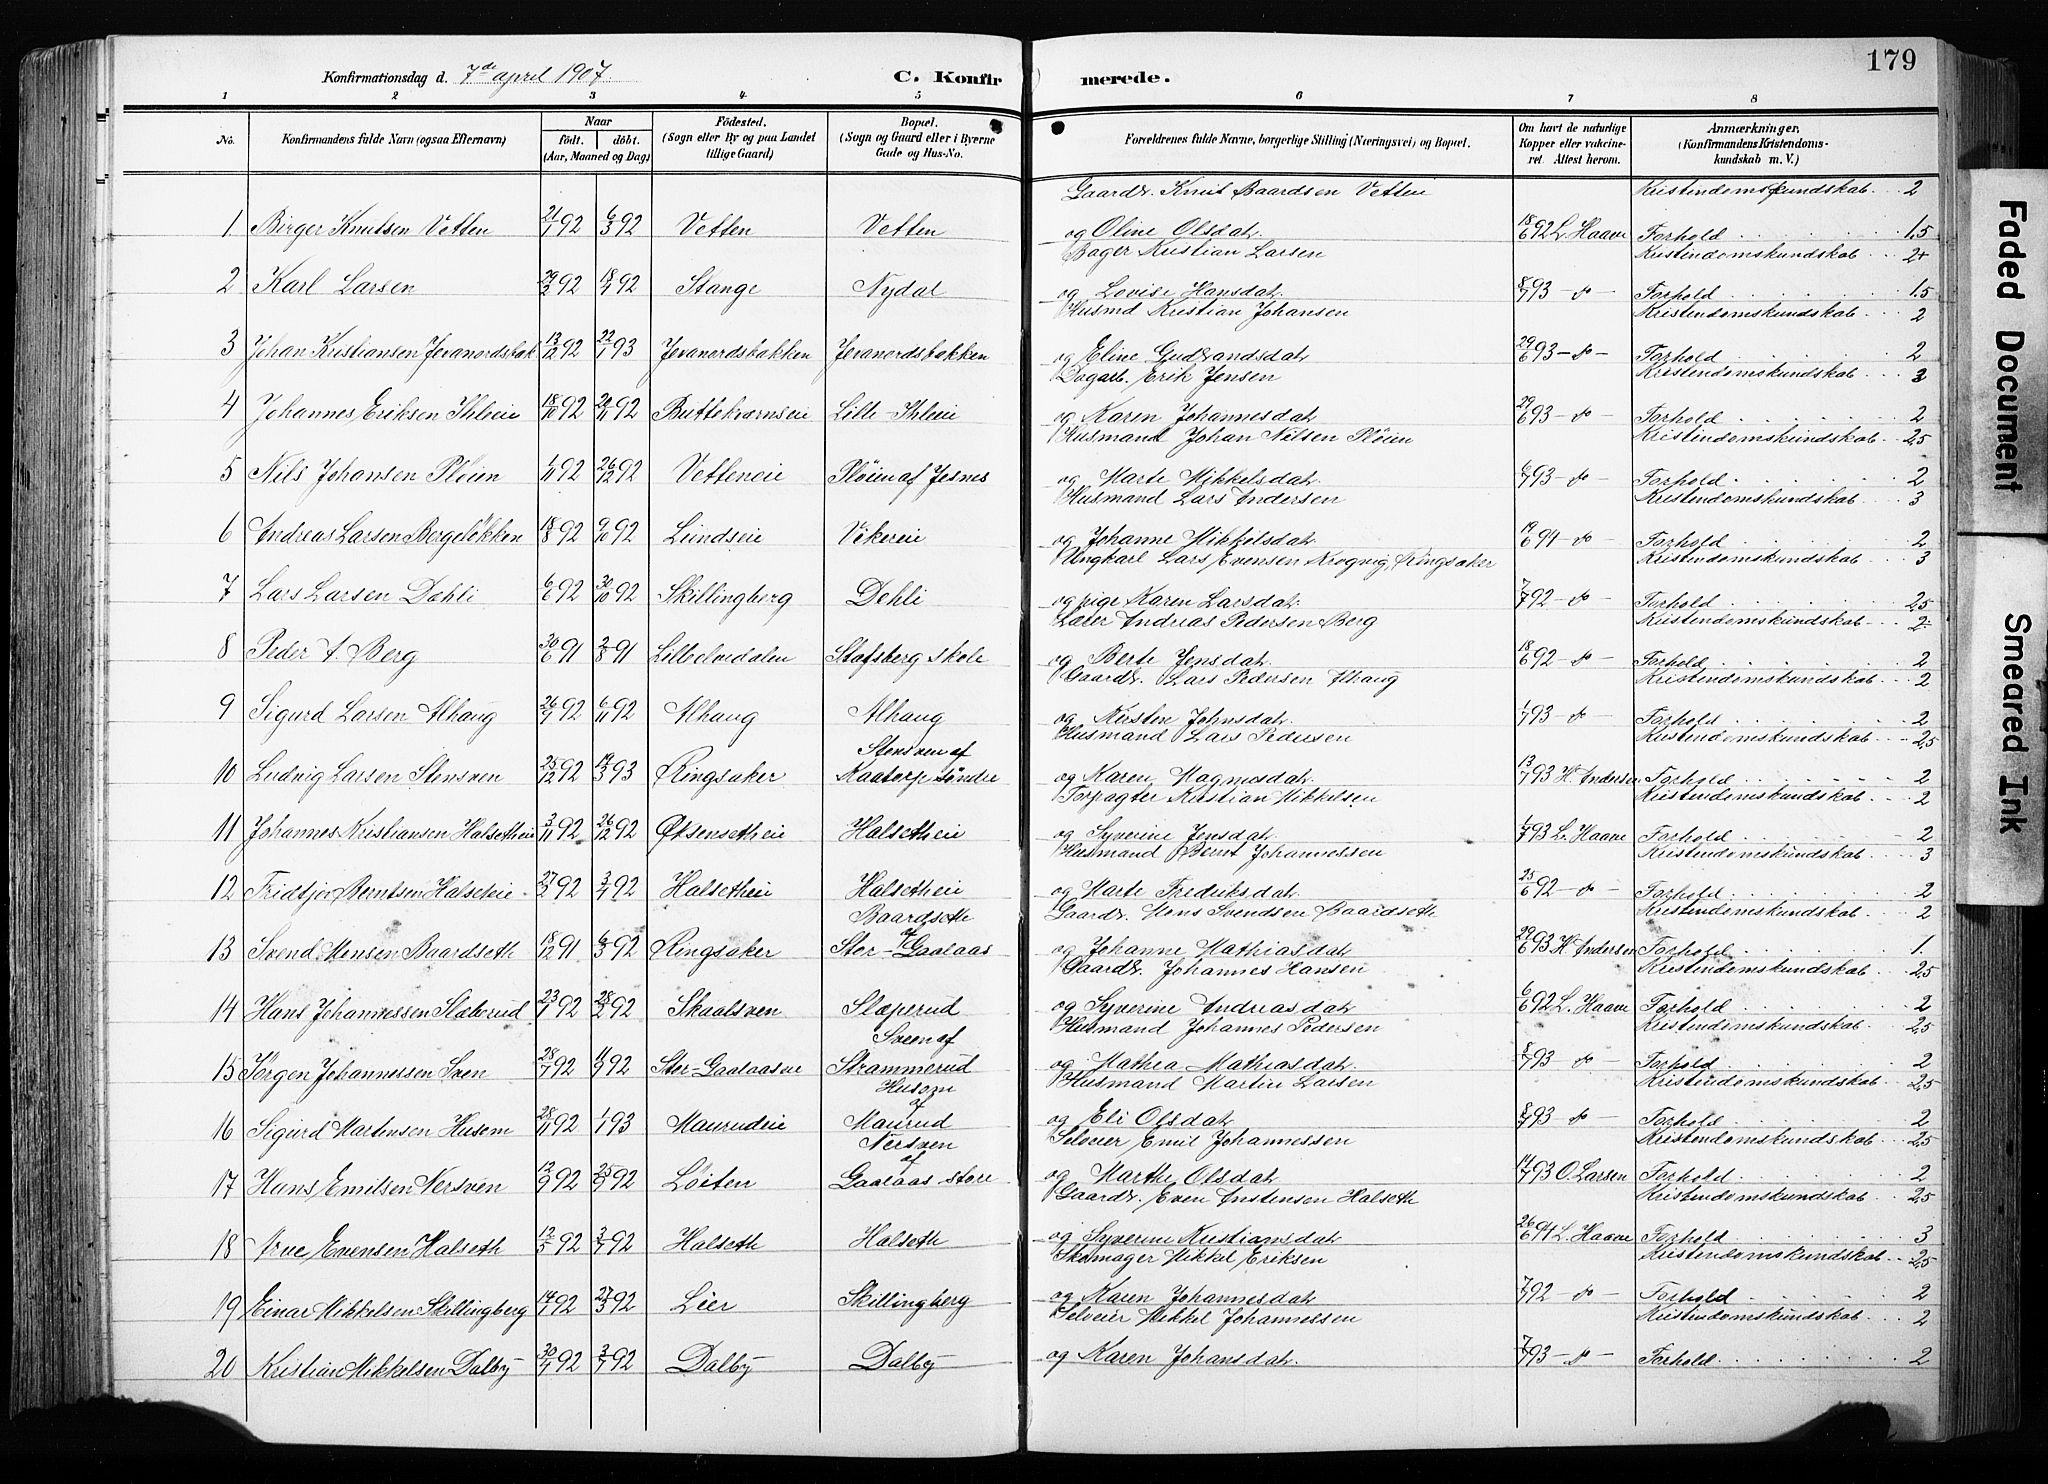 179
Konfirmationsdag d. 7de april 1907. C. Konfirmerede.
1 2 3 4 5 6 7 8
No. Konfirmandens fulde Navn (ogsaa Efternavn) Naar født. døbt. (Aar, Maaned og Dag) Fødested. (Sogn eller By og paa Landet tillige Gaard) Bopæl. (Sogn og Gaard eller i Byerne Gade og Hus-No. Forældrenes fulde Navne, borgerlige Stilling (Næringsvei) og Bopæl. Om havt de naturlige Kopper eller vakcineret. Attest herom. Anmærkninger. (Konfirmandens Kristendomskundskab m. V.)
Gaardbr. Knut Baardsen Vetten Kristendomskundskab 2
1 Birger Knutsen Vetten 21/1 92 6/3 92 Vetten Vetten og Oline Olsdat. 18/6 92 L. Haave Forhold 1,5
Bager Kristian Larsen Kristendomskundskab 2+
2 Karl Larsen 29/2 92 18/4 92 Stange Nydal og Lovise Hansdat. 8/7 93 - do - Forhold 1.5
Husmd Kristian Johansen Kristendomskundskab 2
3 Johan Kristiansen Jevanordsbak 13/12 92 22/1 93 Jevanordsbakken Jevanordsbakken og Eline Gudbrandsdat 29/6 93 - do - Forhold 2
Dagarb. Erik Jensen Kristendomskundskab 3
4 Johannes Eriksen Ihleie 18/10 92 20/11 92 Buttekværnseie Lille-Ihleie og Karen Johannesdat. 29/6 93 - do - Forhold 2
Husmand Johan Nilsen Pløien Kristendomskundskab 2,5
5 Nils Johansen Pløien 1/11 92 26/12 92 Vetteneie Pløien af Jesnes og Marte Mikkelsdat. 6/7 93 - do - Forhold 2
Husmand Lars Andersen Kristendomskundskab 3
6 Andreas Larsen Bergeløkken 18/8 92 9/10 92 Lundseie Vikereie og Johanne Mikkelsdat. 19/6 94 - do - Forhold 2
Ungkarl Lars Evensen Krogvig, Ringsaker Kristendomskundskab 3
7 Lars Larsen Dehli 6/6 92 30/10 92 Skillingberg Dehli og pige Karen Larsdat. 7/7 92 - do - Forhold 2,5
Lærer Andreas Pedersen Berg Kristendomskundskab 2
8 Peder A. Berg 30/6 91 2/8 91 Lilleelvedalen Stafsberg skole og Berte Jensdat. 18/6 92 - do - Forhold 2
Gaardbr. Lars Pedersen Alhaug Kristendomskundskab 2
9 Sigurd Larsen Alhaug 26/9 92 6/11 92 Alhaug Alhaug og Kirsten Johnsdat. 1/7 93 - do - Forhold 2
Stensven af Husmand Lars Pedersen Kristendomskundskab 2,5
10 Ludvig Larsen Stensven 25/12 92 19/3 93 Ringsaker Kaatorp søndre og Karen Magnusdat. 13/7 93 H. Andersen Forhold 2
Forpagter Kristian Mikkelsen Kristendomskundskab 2
11 Johannes Kristiansen Halsetheie 3/11 92 26/12 92 Øksensetheie Halsetheie og Syverine Jensdat. 1/7 93 L. Haave Forhold 2
Husmand Bernt Johannessen Kristendomskundskab 3
12 Fridtjov Berntsen Halseteie 27/2 92 3/4 92 Halsetheie Halsetheie og Marte Fredriksdat. 25/6 92 - do - Forhold 2
Baardseth Gaardbr. Mons Svendsen Baardseth Kristendomskundskab 2
13 Svend Monsen Baardseth 18/12 91 6/3 92 Ringsaker af Stor-Gaalaas og Johanne Mathiasdat. 29/6 93 H. Andersen Forhold 1.
Gaardbr. Johannes Hansen Kristendomskundskab 2,5
14 Hans Johannessen Slæberud 23/1 92 28/2 92 Skaalsven Slæperud og Syverine Andreasdat. 6/6 92 L. Haave Forhold 2
Sveen af Husmand Johannes Pedersen Kristendomskundskab 2,5
15 Jørgen Johannessen Sven 28/7 92 11/9 92 Stor-Gaalaaseie Strammerud og Mathea Mathiasdat. 8/7 93 - do - Forhold 2
Husom Husmand Martin Larsen Kristendomskundskab 2,5
16 Sigurd Martinsen Husom 28/11 92 1/1 93 Maurudeie af Maurud og Eli Olsdat. 8/7 93 - do - Forhold 2
Nersven Selveier Emil Johannessen Kristendomskundskab 2,5
17 Hans Emilsen Nersven 13/9 92 25/9 92 Løiten af Gaalaas store og Marthe Olsdat. 14/7 93 O. Larsen Forhold 2
Gaardbr. Even Arstensen Halseth Kristendomskundskab 2,5
18 Arne Evensen Halseth 12/5 92 3/7 92 Halseth Halseth og Syverine Kristiansdat. 26/6 94 L. Haave Forhold 3
Skomager Mikkel Eriksen Kristendomskundskab 2,5
19 Einar Mikkelsen Skillingberg 14/1 92 27/3 92 Lier Skillingberg og Karen Johannesdat. 7/7 92 - do - Forhold 2
Selveier Mikkel Johannessen Kristendomskundskab 2
20 Kristian Mikkelsen Dalby 30/4 92 3/7 92 Dalby Dalby og Karen Johansdat. 7/7 93 - do - Forhold 2
Faded Document
Smeared Ink